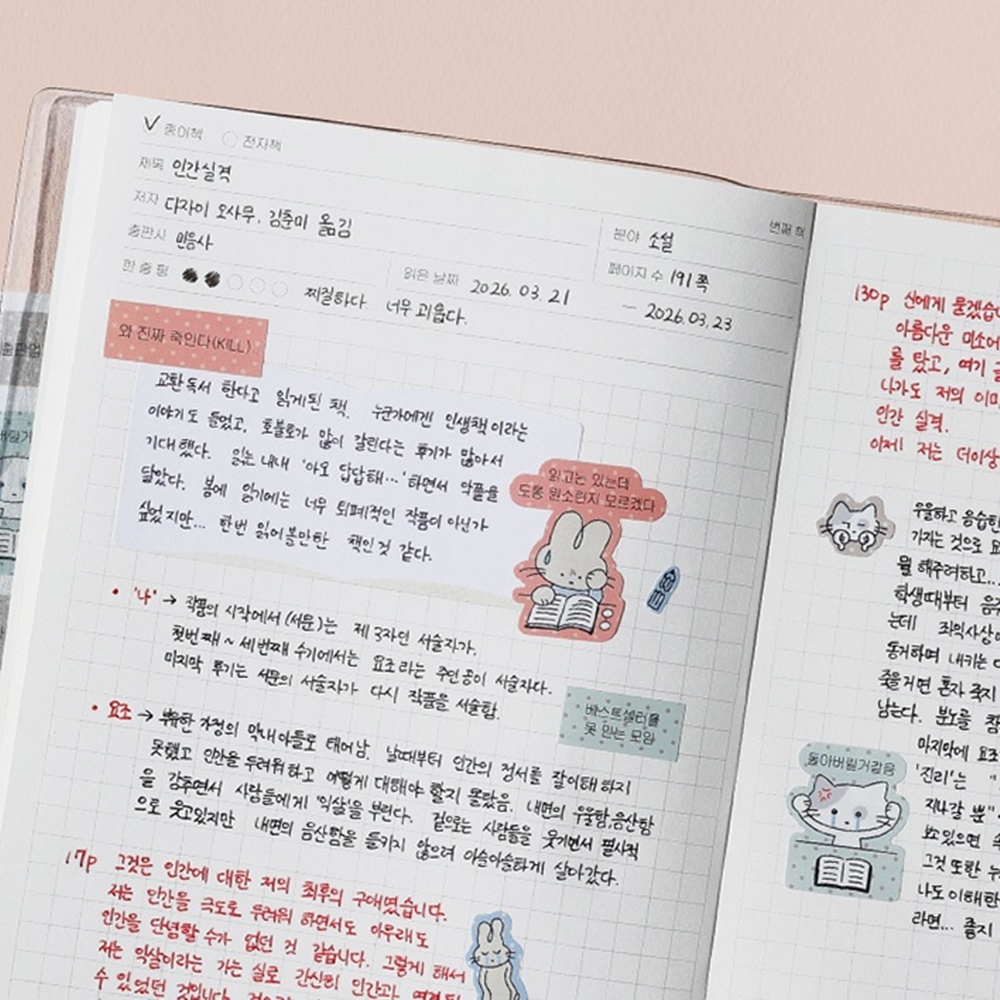 종이책 전자책
제목 인간실격
저자 다자이 오사무, 김춘미 옮김
출판사 민음사
번째 책
분야 소설
페이지 수 191쪽
한 줄 평 찌질하다. 너무 괴롭다.
읽은 날짜 2026. 03. 21
— 2026. 03. 23
와 진짜 죽인다(KILL)
교환독서 한다고 읽게된 책. 누군가에겐 인생책이라는
이야기도 들었고, 호불호가 많이 갈린다는 후기가 많아서
기대했다. 읽는 내내 '아오 답답해...' 하면서 악플을
달았다. 봄에 읽기에는 너무 퇴폐적인 작품이 아닌가
싶었지만... 한번 읽어볼만한 책인 것 같다.
읽고는 있는데
도통 뭔소린지 모르겠다
• '나' → 작품의 시작에서 (서문)는 제 3자인 서술자가.
첫번째 ~ 세번째 수기에서는 요조라는 주인공이 서술자다.
마지막 후기는 서문의 서술자가 다시 작품을 서술함.
베스트셀러를
못 믿는 모임
• 요조 → 부유한 가정의 막내아들로 태어남. 날때부터 인간의 정서를 잘이해 하지
못했고 인간을 두려워하고 어떻게 대해야 할지 몰랐음. 내면의 우울함, 음산함
을 감추면서 사람들에게 '익살'을 부린다. 겉으로는 사람들을 웃기면서 필사적
으로 웃고있지만 내면의 음산함을 들키지 않으려 아슬아슬하게 살아갔다.
17p 그것은 인간에 대한 저의 최후의 구애였습니다.
저는 인간을 극도로 두려워 하면서도 아무래도
인간을 단념할 수가 없던 것 같습니다. 그렇게 해서
저는 익살이라는 가는 실로 간신히 인간과
수 있었던 것입니다.
130p 신에게 묻겠습니
아름다운 미소에
를 탔고, 여기
나가도 저의 이마
인간 실격.
이제 저는 더이상
우울하고 음습한
가지는 것으로
뭘 해주려하고...
학생때부터
는데 죄의식상
동거하며 내키는
죽을거면 혼자 죽지
남는다. 분노를 참
마지막에 요조
'진리'는 "
지나갈 뿐"
있으면
그것 또한
나도 이해한
라면... 좀지
돌아버릴거같음
출판업
버릴거